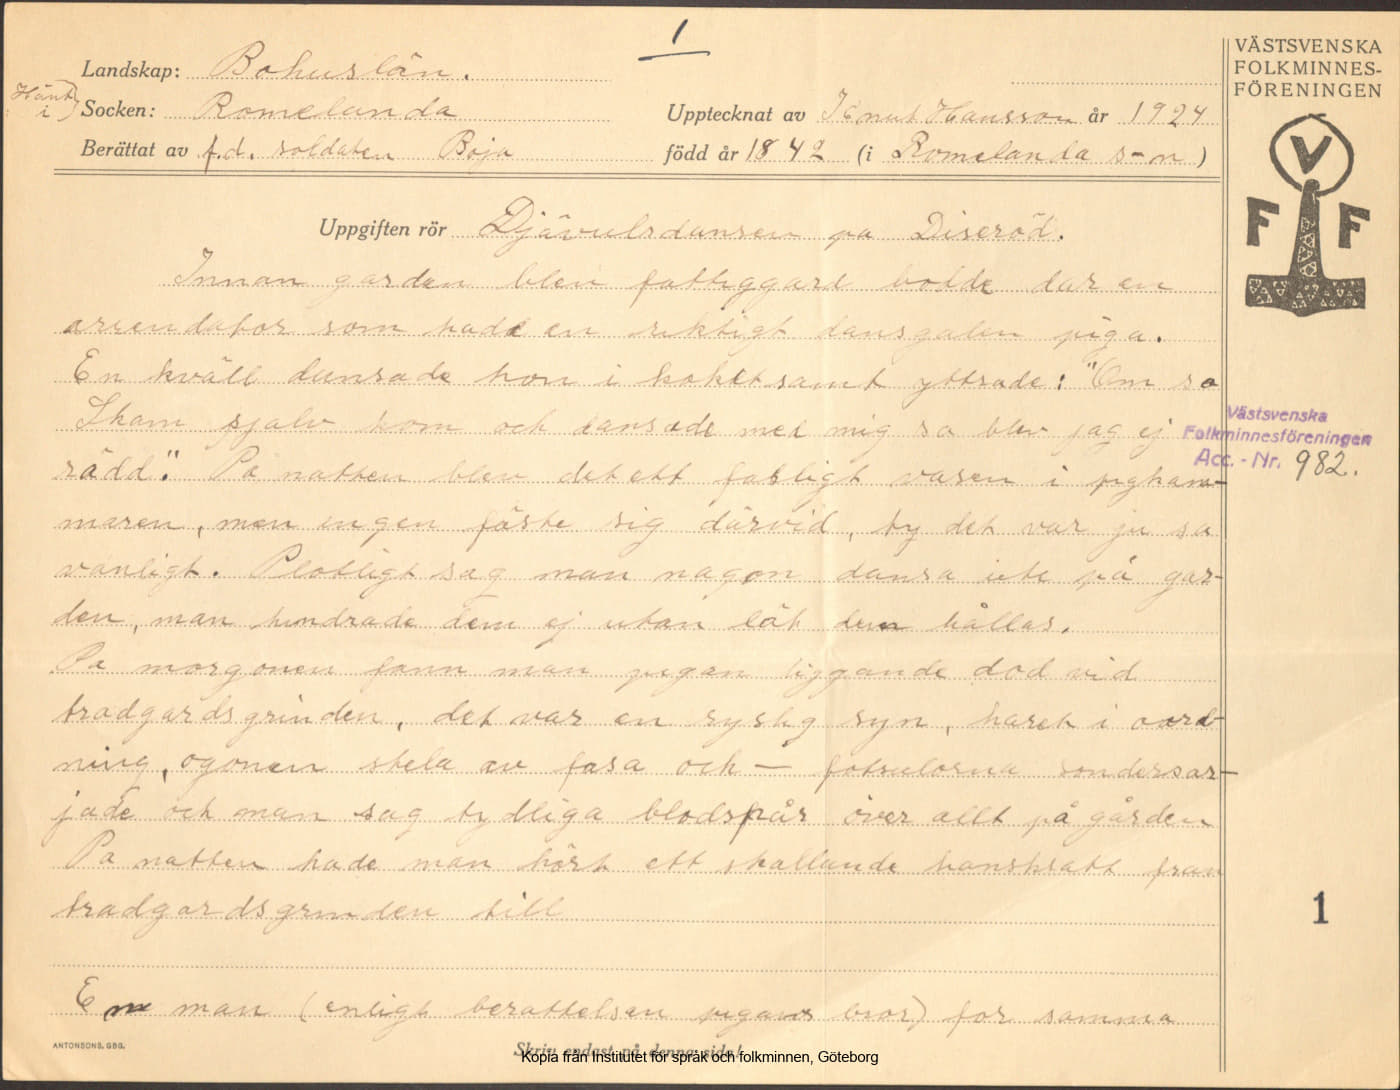 1
Landskap: Bohuslän.
Hänt i) Socken: Romelanda
Upptecknat av Knut Hansson år 1924
Berättat av f.d. soldaten Böja
född år 1842 (i Romelanda s-n)
VÄSTSVENSKA
FOLKMINNES-
FÖRENINGEN
V
F F
Uppgiften rör Djävulsdansen pa Diseröd.
Innan garden blev fattiggard bodde dar en
arrendator som hade en riktigt dansgalen piga.
En kväll dansade hon i köket samt yttrade: "Om so
Skam sjalv kom och dansade med mig sa blev jag ej
rädd." Pa natten blev det ett fasligt vasen i pigkam-
maren, men ingen fäste sig därvid, ty det var ju sa
vanligt. Plotsligt sag man nagon dansa ute på gar-
den, man hindrade dem ej utan lät dem hållas.
Pa morgonen fann man pigan liggande dod vid
tradgardsgrinden, det var en ryslig syn, haret i oord-
ning, ogonen stela av fasa och — fotsulorna sondersar-
jade och man sag tydliga blodspår över allt på gården
Pa natten hade man hört ett skallande hanskratt fran
tradgardsgrinden till
En man (enligt berattelsen pigans bror) for samma
Västsvenska
Folkminnesföreningen
Acc.-Nr. 982.
1
ANTONSONS, GBG.
Skriv endast på denna sida!
Kopia från Institutet för språk och folkminnen, Göteborg